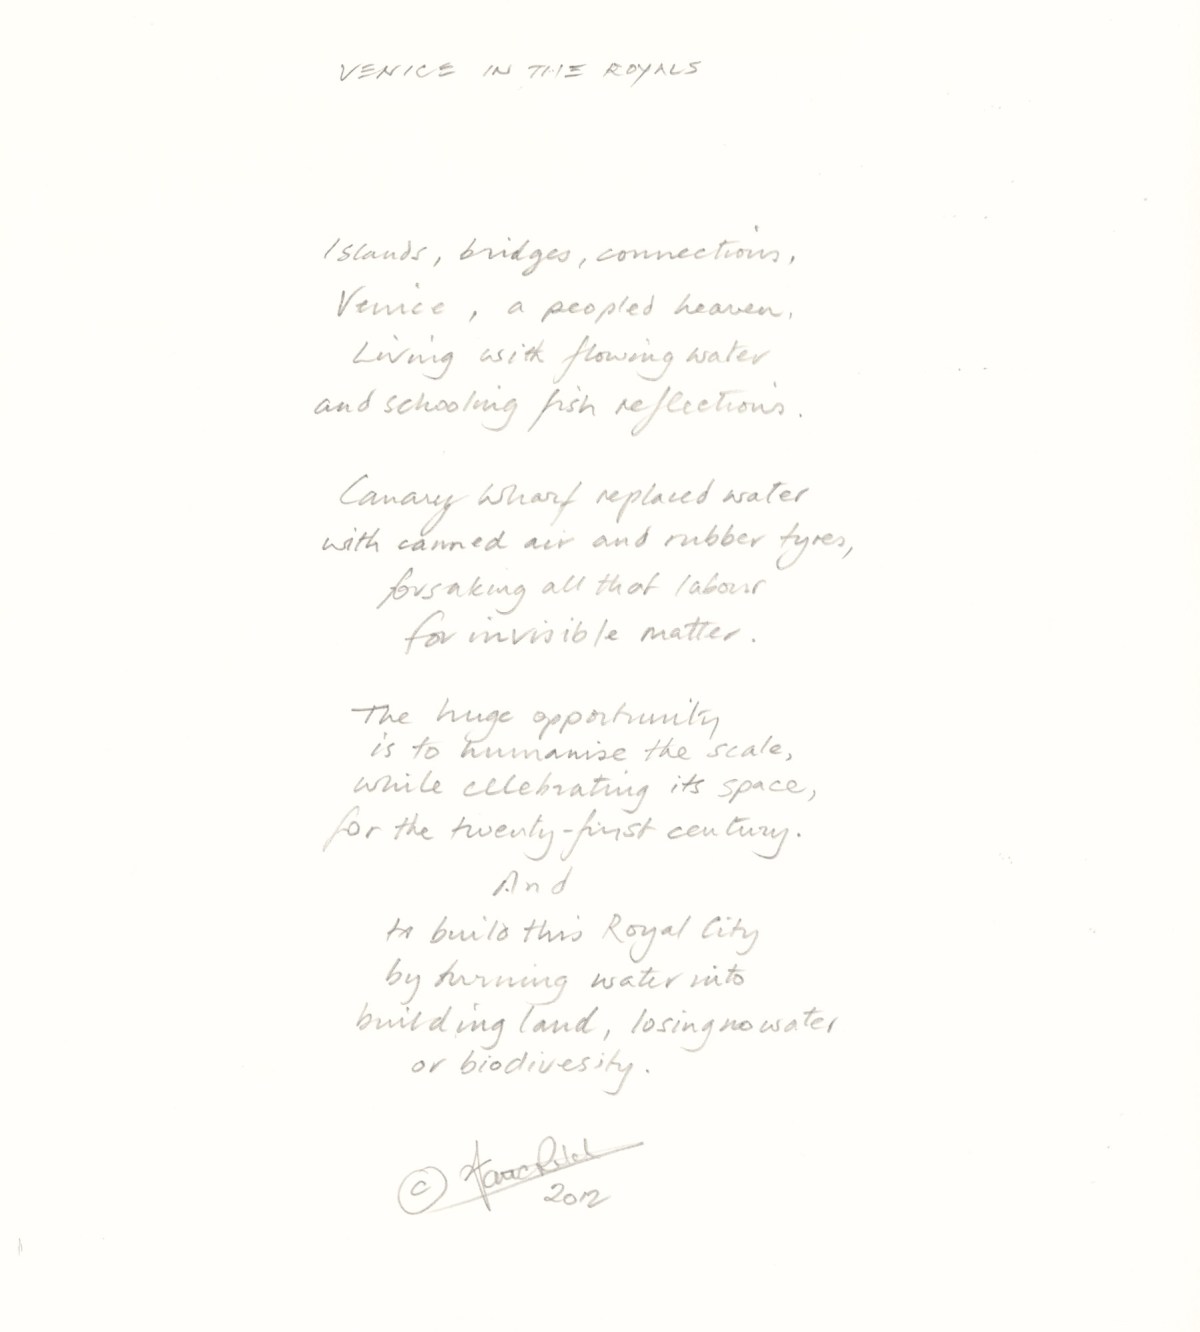 VENICE IN THE ROYALS
Islands, bridges, connections,
Venice, a peopled heaven.
Living with flowing water
and schooling fish reflections.
Canary Wharf replaced water
with canned air and rubber tyres,
forsaking all that labour
for invisible matter.
The huge opportunity
is to humanise the scale,
while celebrating its space,
for the twenty-first century.
And
to build this Royal City
by turning water into
building land, losing no water
or biodivesity.
©
2012